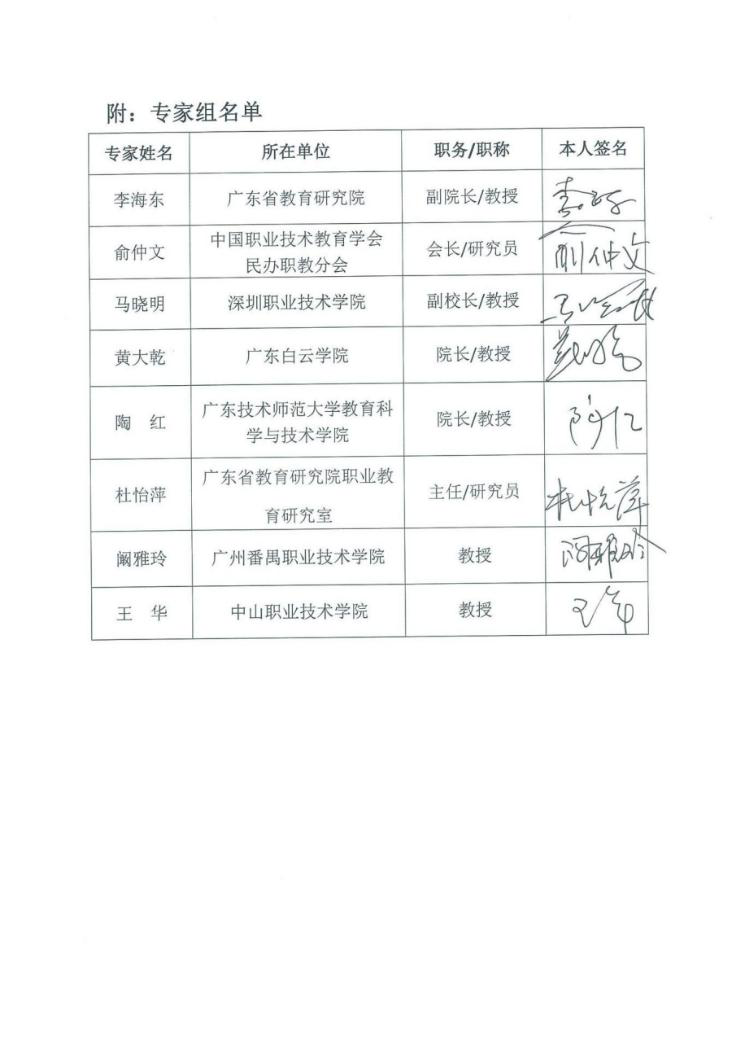 附：专家组名单
专家姓名 所在单位 职务/职称 本人签名
李海东 广东省教育研究院 副院长/教授
俞仲文 中国职业技术教育学会 会长/研究员 俞仲文
民办职教分会
马晓明 深圳职业技术学院 副校长/教授
黄大乾 广东白云学院 院长/教授
陶 红 广东技术师范大学教育科 院长/教授
学与技术学院
杜怡萍 广东省教育研究院职业教 主任/研究员 杜怡萍
育研究室
阚雅玲 广州番禺职业技术学院 教授 阚雅玲
王 华 中山职业技术学院 教授 王华